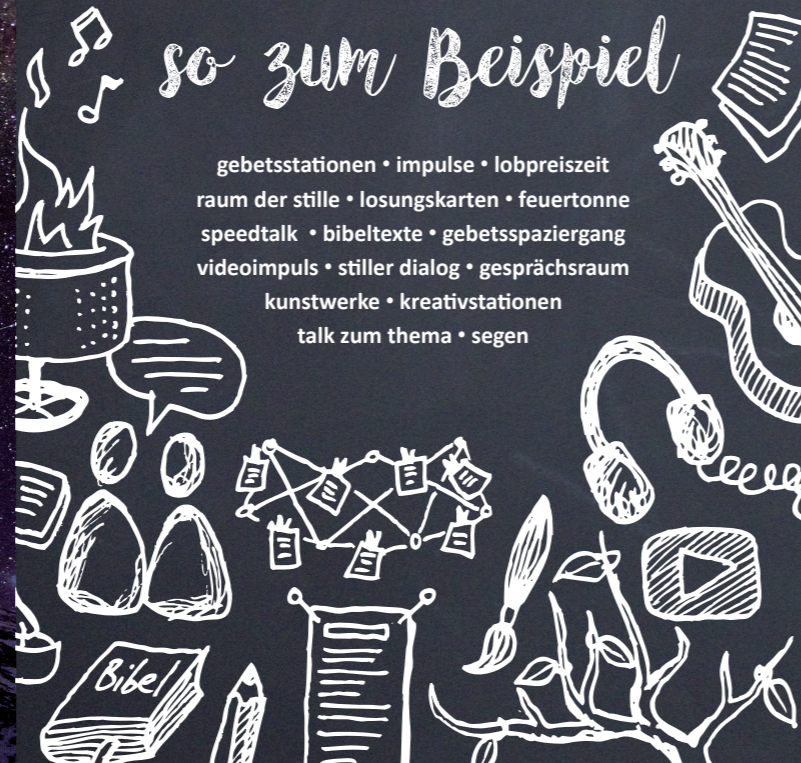 so zum Beispiel
gebetsstationen • impulse • lobpreiszeit
raum der stille • losungskarten • feuertonne
speedtalk • bibeltexte • gebetsspaziergang
videoimpuls • stiller dialog • gesprächsraum
kunstwerke • kreativstationen
talk zum thema • segen
Bibel